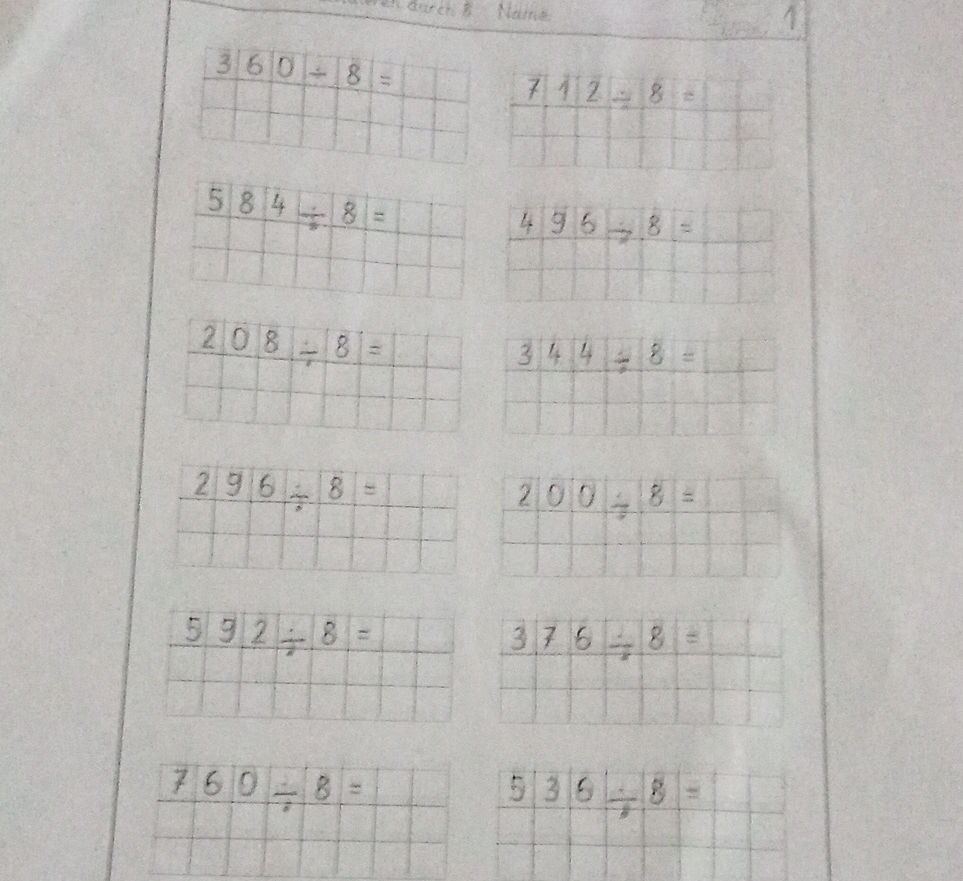 durch 8 Name
1
360 ÷ 8 =
712 ÷ 8 =
584 ÷ 8 =
496 ÷ 8 =
208 ÷ 8 =
344 ÷ 8 =
296 ÷ 8 =
200 ÷ 8 =
592 ÷ 8 =
376 ÷ 8 =
760 ÷ 8 =
536 ÷ 8 =